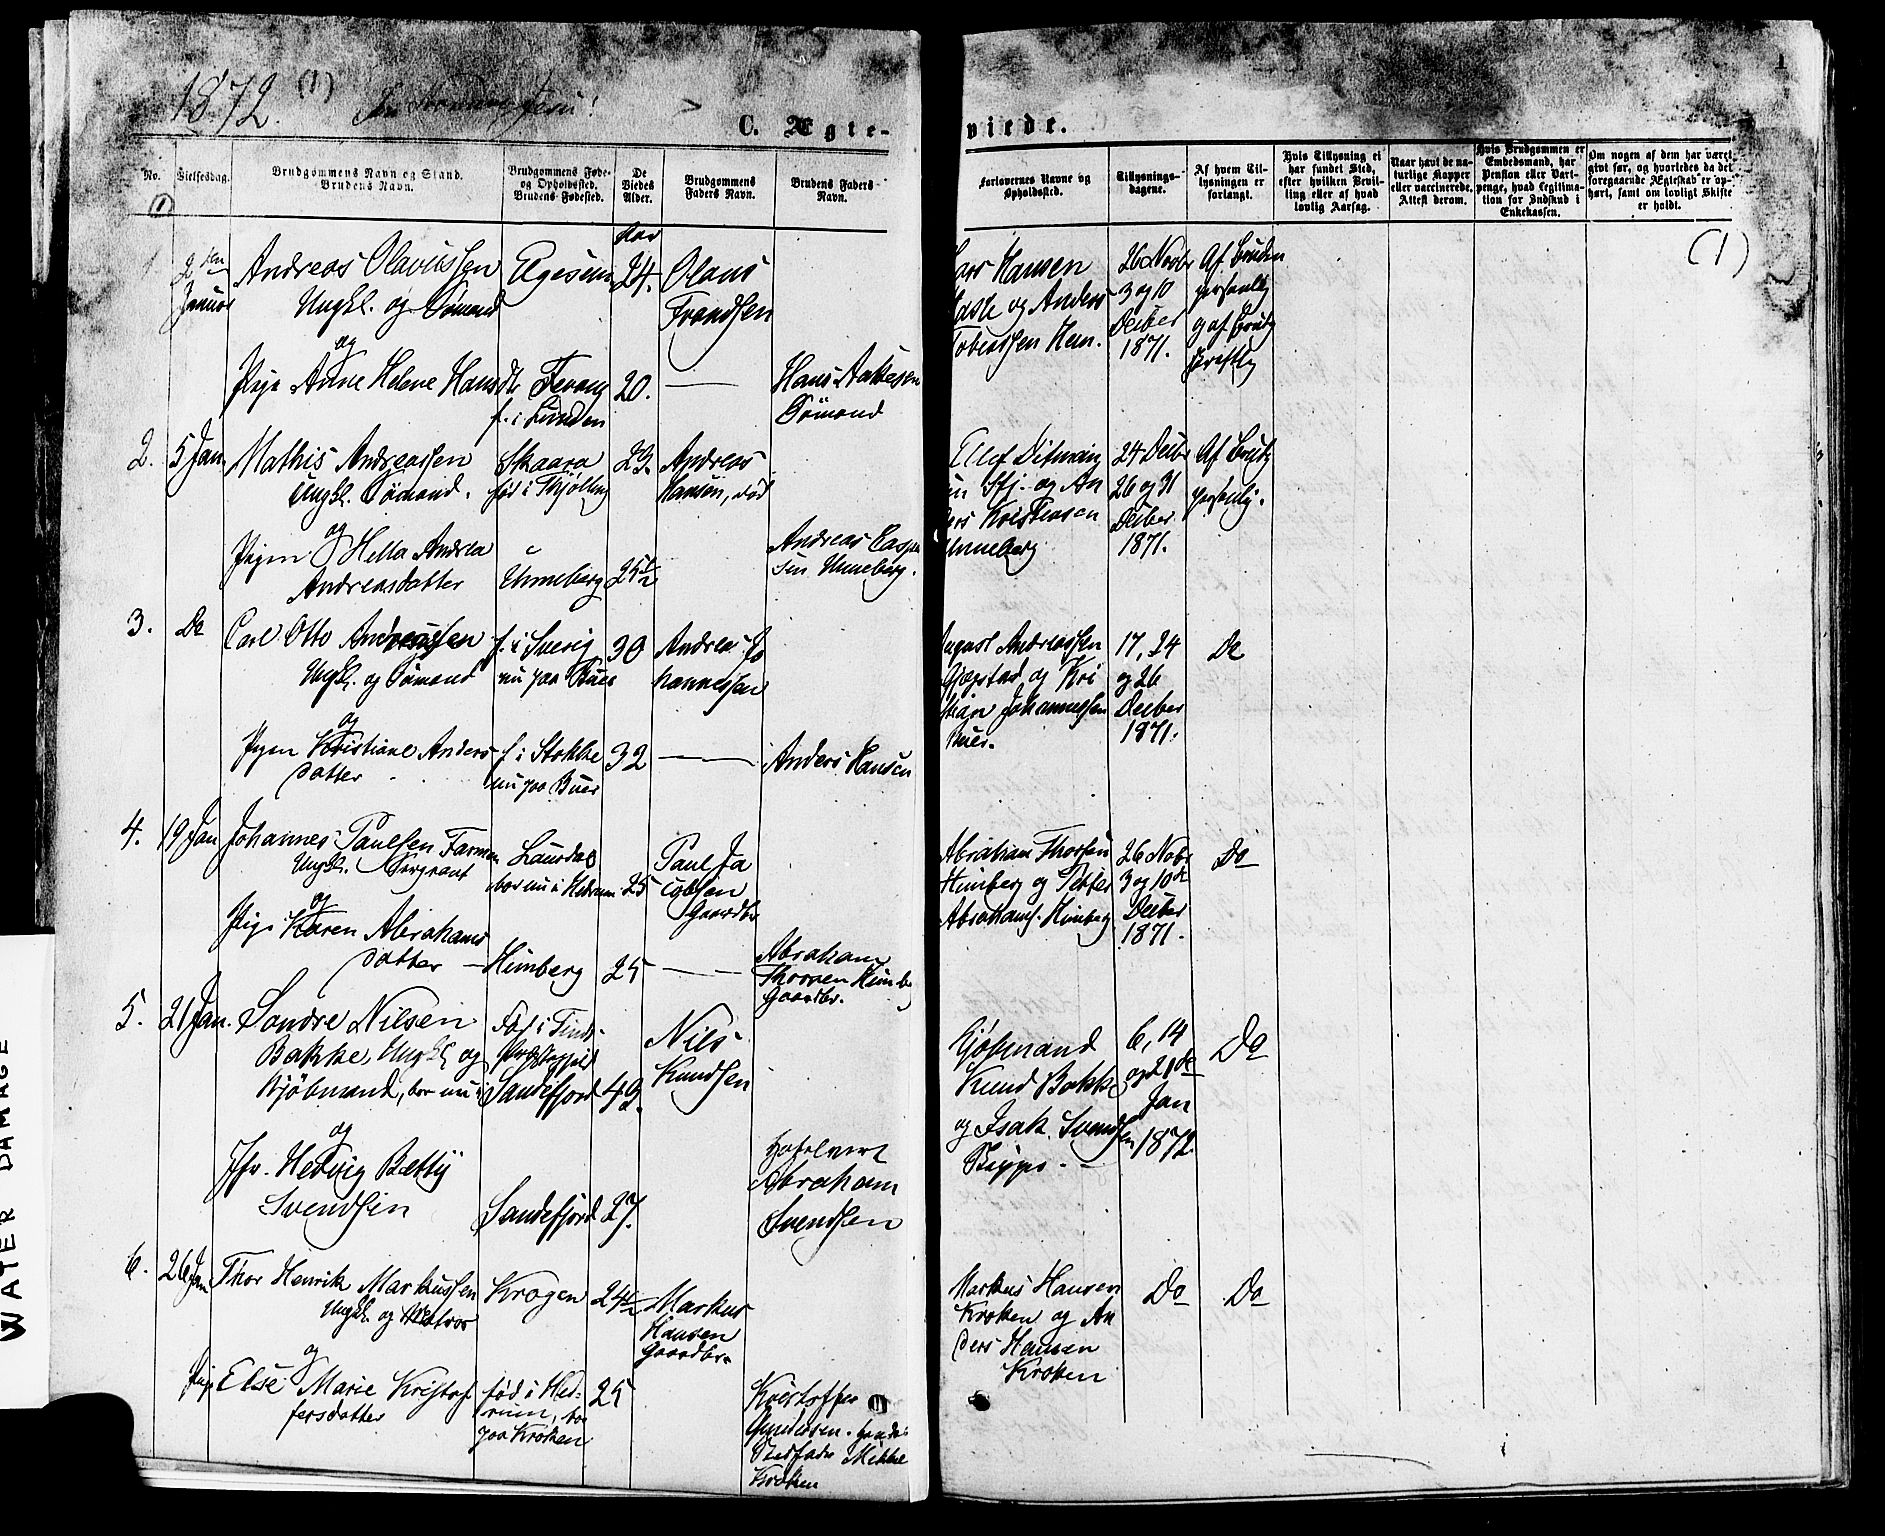 1872. (1) Jesu!
C. Ægte-
viede.
No.
Vielsesdag.
Brudgommens Navn og Stand.
Brudens Navn.
Brudgommens Føde-
og Opholdssted.
Brudens Fødested.
De
Viedes
Alder.
Brudgommens
Faders Navn.
Brudens Faders
Navn.
Forlovernes Navne og
Opholdssted.
Tillysnings-
dagene.
Af hvem Til-
lysningen er
forlangt.
Hvis Tillysning ei
har fundet Sted,
efter hvilken Bevil-
ling eller af hvad
lovlig Aarsag.
Naar havt de na-
turlige Kopper
eller vaccinerede,
Attest derom.
Hvis Brudgommen er
Embedsmand, har
Pension eller Vart-
penge, hvad Legitima-
tion for Indskud i
Enkekassen.
Om nogen af dem har været
givt før, og hvorledes da det
foregaaende Ægteskab er op-
hørt, samt om lovligt Skifte
er holdt.
(1)
1
2den
Januar
Andreas Olaviussen
Ungkl. og Sømand
og
Pige Anne Helene Hansdtr
24.
Olaus
Frandsen
f. i Lunden
20.
Hans Aakesen
Sømand
Lars Hansen
og Anders
Tobiassen Hem.
26 Novbr
3 og 10
Decber
1871.
Af Bruden
personlig
2.
5 Jan.
Mathis Andreassen
Ungkl. Sømand.
og
Pigen Hella Andrea
Andreasdatter
Skaara
født i Thjølling
Unneberg
23.
25 1/2
Andreas
Hansen, død
Andreas Casper
sen Unneberg.
Ellef Ditman
Sfj. og An
ders Kristensen
Unneberg
24 Decbr
26 og 31
Decber
1871.
personlig.
3.
Do
Carl Otto Andreassen
Ungkl. og Sømand
og
Pigen Kristiane Anders
datter
f. i Sverig
nu paa Bues
f. i Stokke
nu paa Bues
30
32
Andreas Jo
hannessen
Anders Hansen
August Andreassen
Gjøgstad og Kri
stian Johannessen
Bues.
17, 24
og 26
Decber
1871.
Do
4.
19 Jan
Johannes Paulsen Farmen
Ungkl. Sergeant
og
Pige Karen Abrahams
datter
Laurdal
bor nu i Hedrum
Himberg
25
25
Paul Ja
cobsen
Gaardbr
Abraham
Thorsen Himberg
Gaardbr.
Abraham Thorsen
Himberg og Petter
Abrahams. Himberg
26 Nobr
3 og 10de
Decber
1871.
Do
5.
21 Jan.
Sondre Nilsen
Bakke, Ungkl og
Kjøbmand, bor nu i
og
Jfr. Hedvig Betty
Svendsen
Fød i Tinds
Præstegjeld
Sandefjord
Sandefjord
43.
27.
Nils
Knudsen
Hotelvert
Abraham
Svendsen
Kjøbmand
Knud Bakke
og Isak Svendsen
6, 14
og 21de
Jan
1872.
Do
6.
26 Jan
Thor Henrik Markussen
Ungkl. og Matros
og
Pige Else Marie Kristof
fersdatter
Krogen
født i Hed-
rum, bor
paa Kroken
24 1/2
25
Markus
Hansen
Gaardbr.
Kristoffer
Gundersen.
Stedfader Mikkel
Kroken
Markus Hansen
Kroken og An
ders Hansen
Kroken
Do
Do
WATER DAMAGE